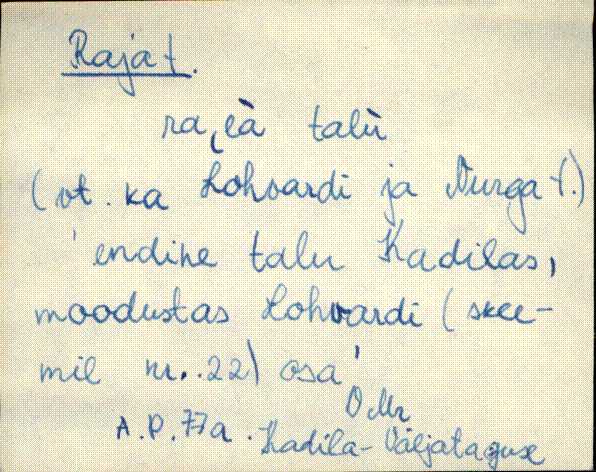 Raja t.
raja talu
(vt. ka Lohvardi ja Nurga t.)
'endine talu Kadilas,
moodustas Lohvardi (skee-
mil nr. 22) osa'
A. P. 77a. Kadila-Väljataguse